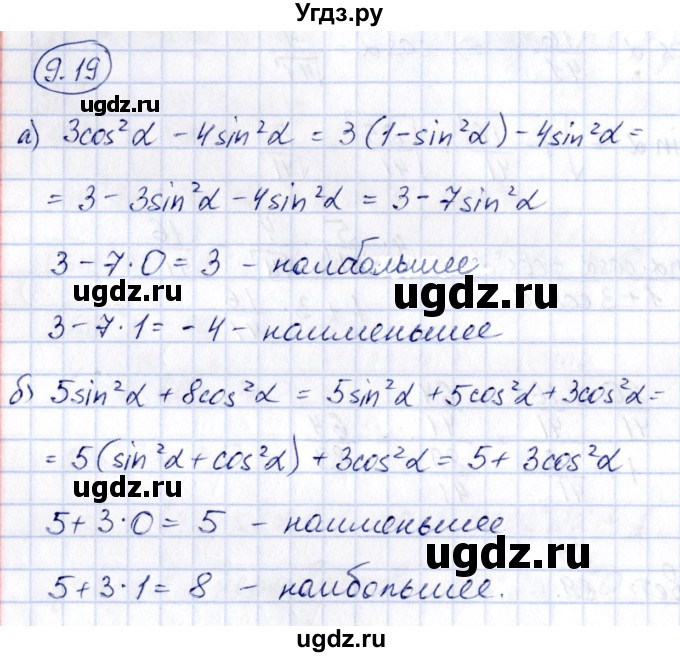 Угдз.ру
9.19
ugdz.ru
а) 3cos²α - 4sin²α = 3(1-sin²α) - 4sin²α =
= 3 - 3sin²α - 4sin²α = 3 - 7sin²α
3 - 7·0 = 3 - наибольшее
ugdz.ru
ugdz.ru
3 - 7·1 = -4 - наименьшее
ugdz.ru
б) 5sin²α + 8cos²α = 5sin²α + 5cos²α + 3cos²α =
= 5(sin²α + cos²α) + 3cos²α = 5 + 3cos²α
ugdz.ru
5 + 3·0 = 5 - наименьшее
ugdz.ru
5 + 3·1 = 8 - наибольшее.
ugdz.ru
ugdz.ru